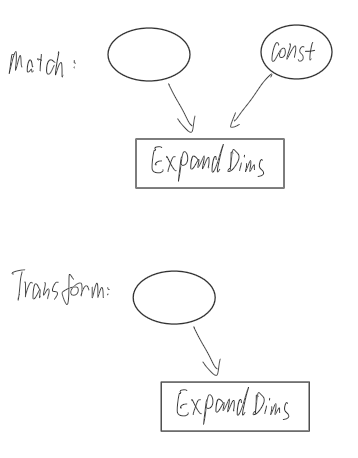 Match:
const
ExpandDims
Transform:
ExpandDims